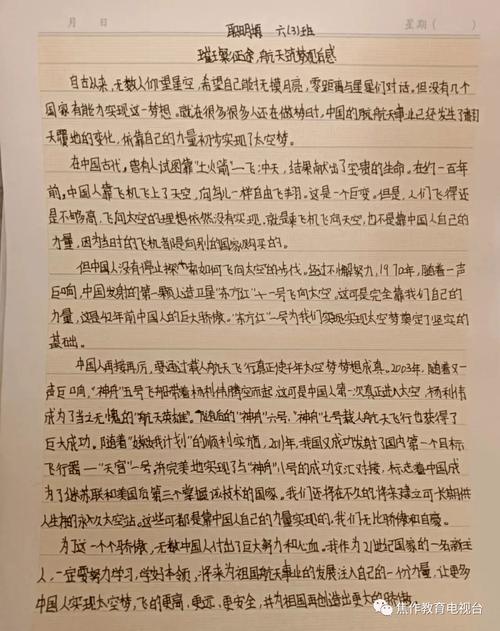 月 日 星期( )
耿玥娴 六(3)班
璀璨征途,航天筑梦观后感
自古以来,无数人仰望星空,希望自己能抚摸月亮,零距离与星星们对话。但没有几个
国家有能力实现这一梦想。就在很多很多人还在做梦时,中国的航航天事业已经发生了翻
天覆地的变化,依靠自己的力量初步实现了太空梦。
在中国古代,曾有人试图靠“土火箭”一飞冲天,结果献出了宝贵的生命。在约一百年
前,中国人靠飞机飞上了天空,向鸟儿一样自由飞翔。这是一个巨变。但是,人们飞得还
是不够高,飞向太空的理想依然没有实现,就是乘飞机飞向天空,也不是靠中国人自己的
力量,因为当时的飞机都是向别的国家购买的。
但中国人没有停止探索如何飞向太空的步伐。经过不懈努力,1970年,随着一声
巨响,中国发射的第一颗人造卫星“东方红”十一号飞向太空。这可是完全靠我们自己的
力量,这是42年前中国人的巨大骄傲。“东方红”一号为我们实现实现太空梦奠定了坚实的
基础。
中国人再接再厉,要通过载人航天飞行真正使千年太空梦梦想成真。2003年,随着又一
声巨响,“神舟”五号飞船带着杨利伟腾空而起,这可是中国人第一次真正进入太空,杨利伟
成为了当之无愧的“航天英雄”。随后的“神舟”六号,“神舟”七号载人航天飞行也获得了
巨大成功。随着“嫦娥计划”的顺利实施,2011年,我国又成功发射了国内第一个目标
飞行器——“天宫”一号并完美地实现了与“神舟”八号的成功交汇对接,标志着中国成
为了继苏联和美国后第三个掌握该技术的国家。我们还将在不久的将来建立可长期供
人生活的永久太空站。这些可都是靠中国人自己的力量实现的,我们无比骄傲和自豪。
为了这一个个骄傲,无数中国人付出了巨大努力和心血。我作为21世纪国家的一名新主
人,一定要努力学习,学好本领,将来为祖国航天事业的发展注入自己的一份力量,让更多
中国人实现太空梦,飞的更高、更远、更安全,并为祖国再创造出更大的骄傲。
焦作教育电视台